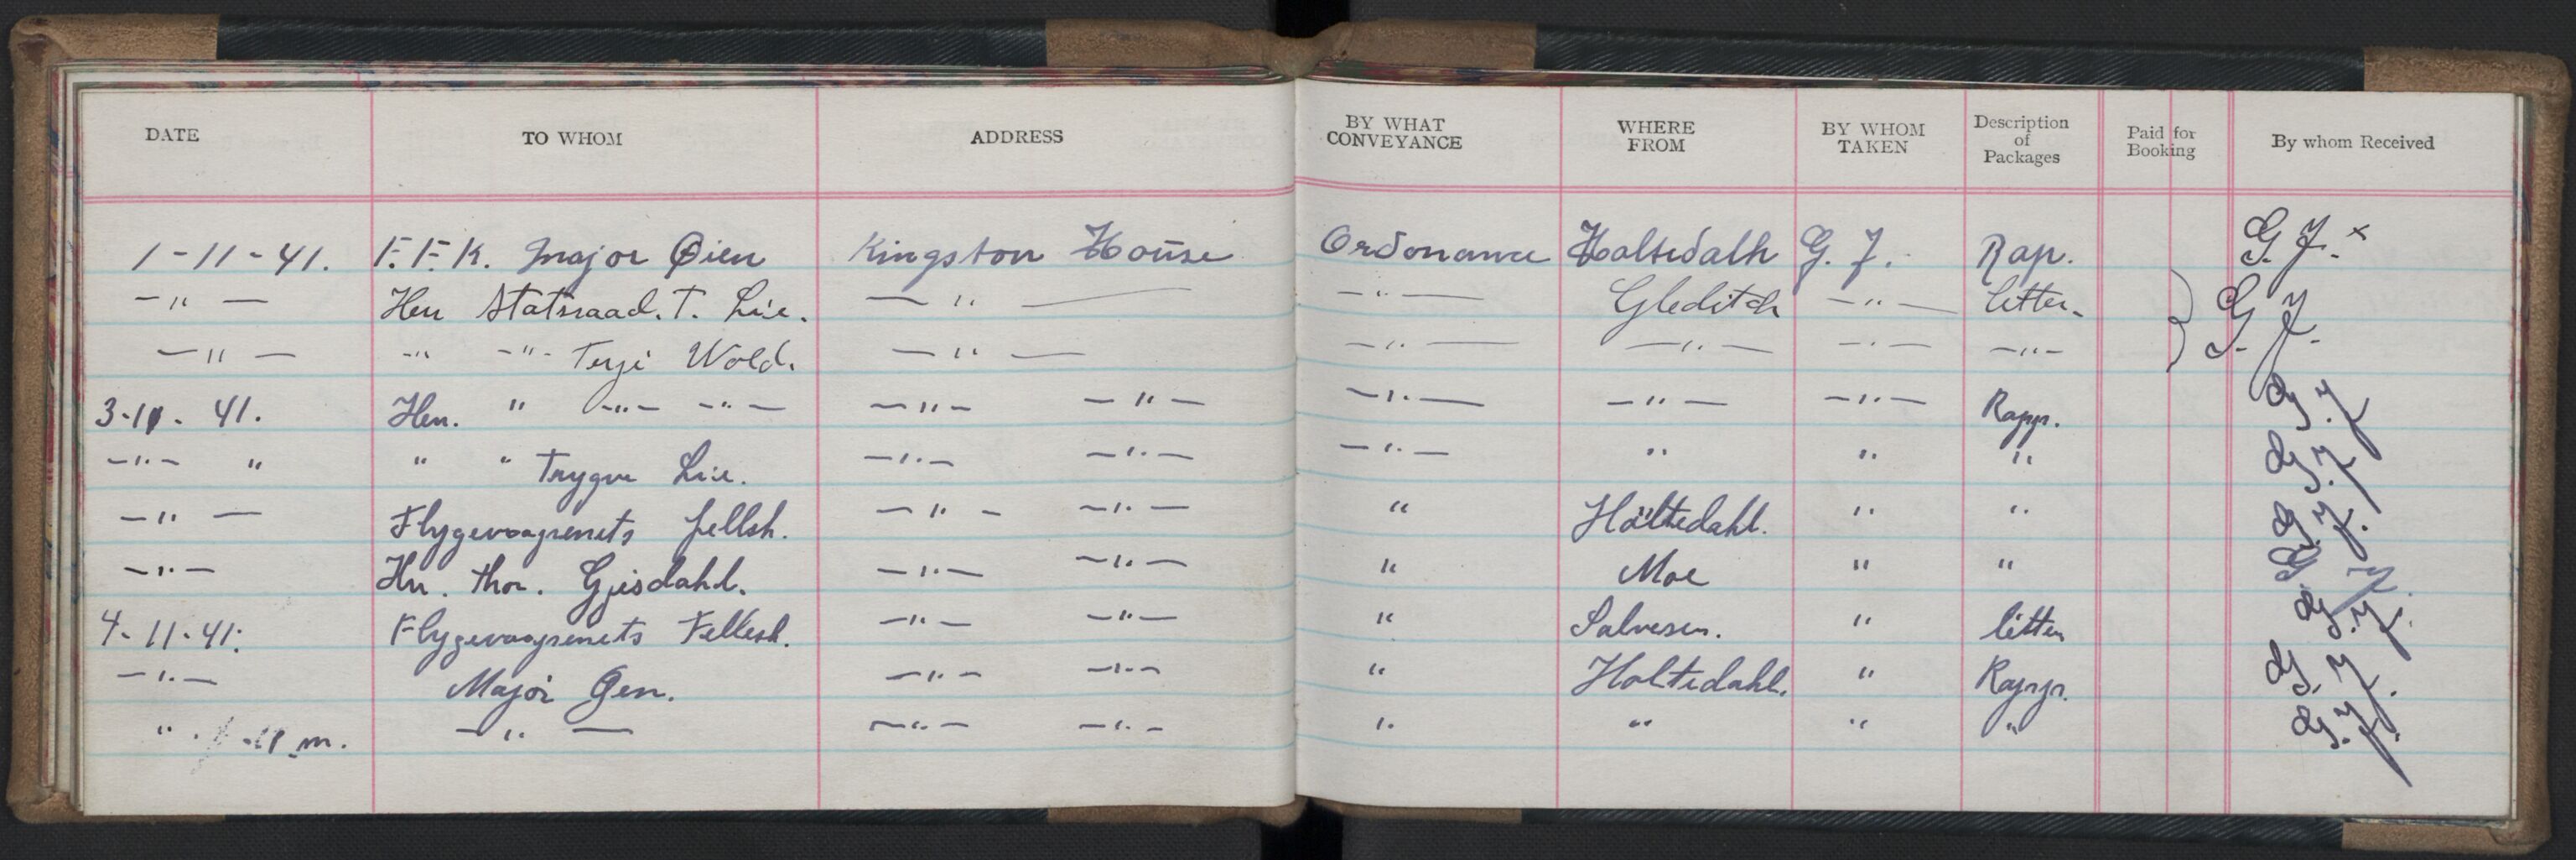 DATE TO WHOM ADDRESS BY WHAT CONVEYANCE WHERE FROM BY WHOM TAKEN Description of Packages Paid for Booking By whom Received
1-11-41. F.F.K. Major Øien Kingston House Ordonance Holtedalh G. J. Rap. G. J. x
-"- Herr Statsraad. T. Lie. -"- -"- Gleditch -"- letter. G J
-"- -"- -"- Terje Wold. -"- -"- -"- -"- -"- G. J.
3-11-41. Herr. " -"- -"- -"- -"- -"- -"- -"- Rapp. G. J
-"- " " " Trygve Lie. -"- -"- -"- " " " G. J
-"- Flygevaapnenets fellsh. -"- -"- " Holtedahl. " " G. J.
-"- Hr. Thor. Gjesdahl. -"- -"- " Moe " " G. J.
4-11-41. Flygevaapnenets Fellesh. -"- -"- " Salvesen. " letter G. J.
-"- Major Øen. -"- -"- " Holtedahl. " Rapp. G. J.
" m. -"- -"- -"- " " " " G. J.